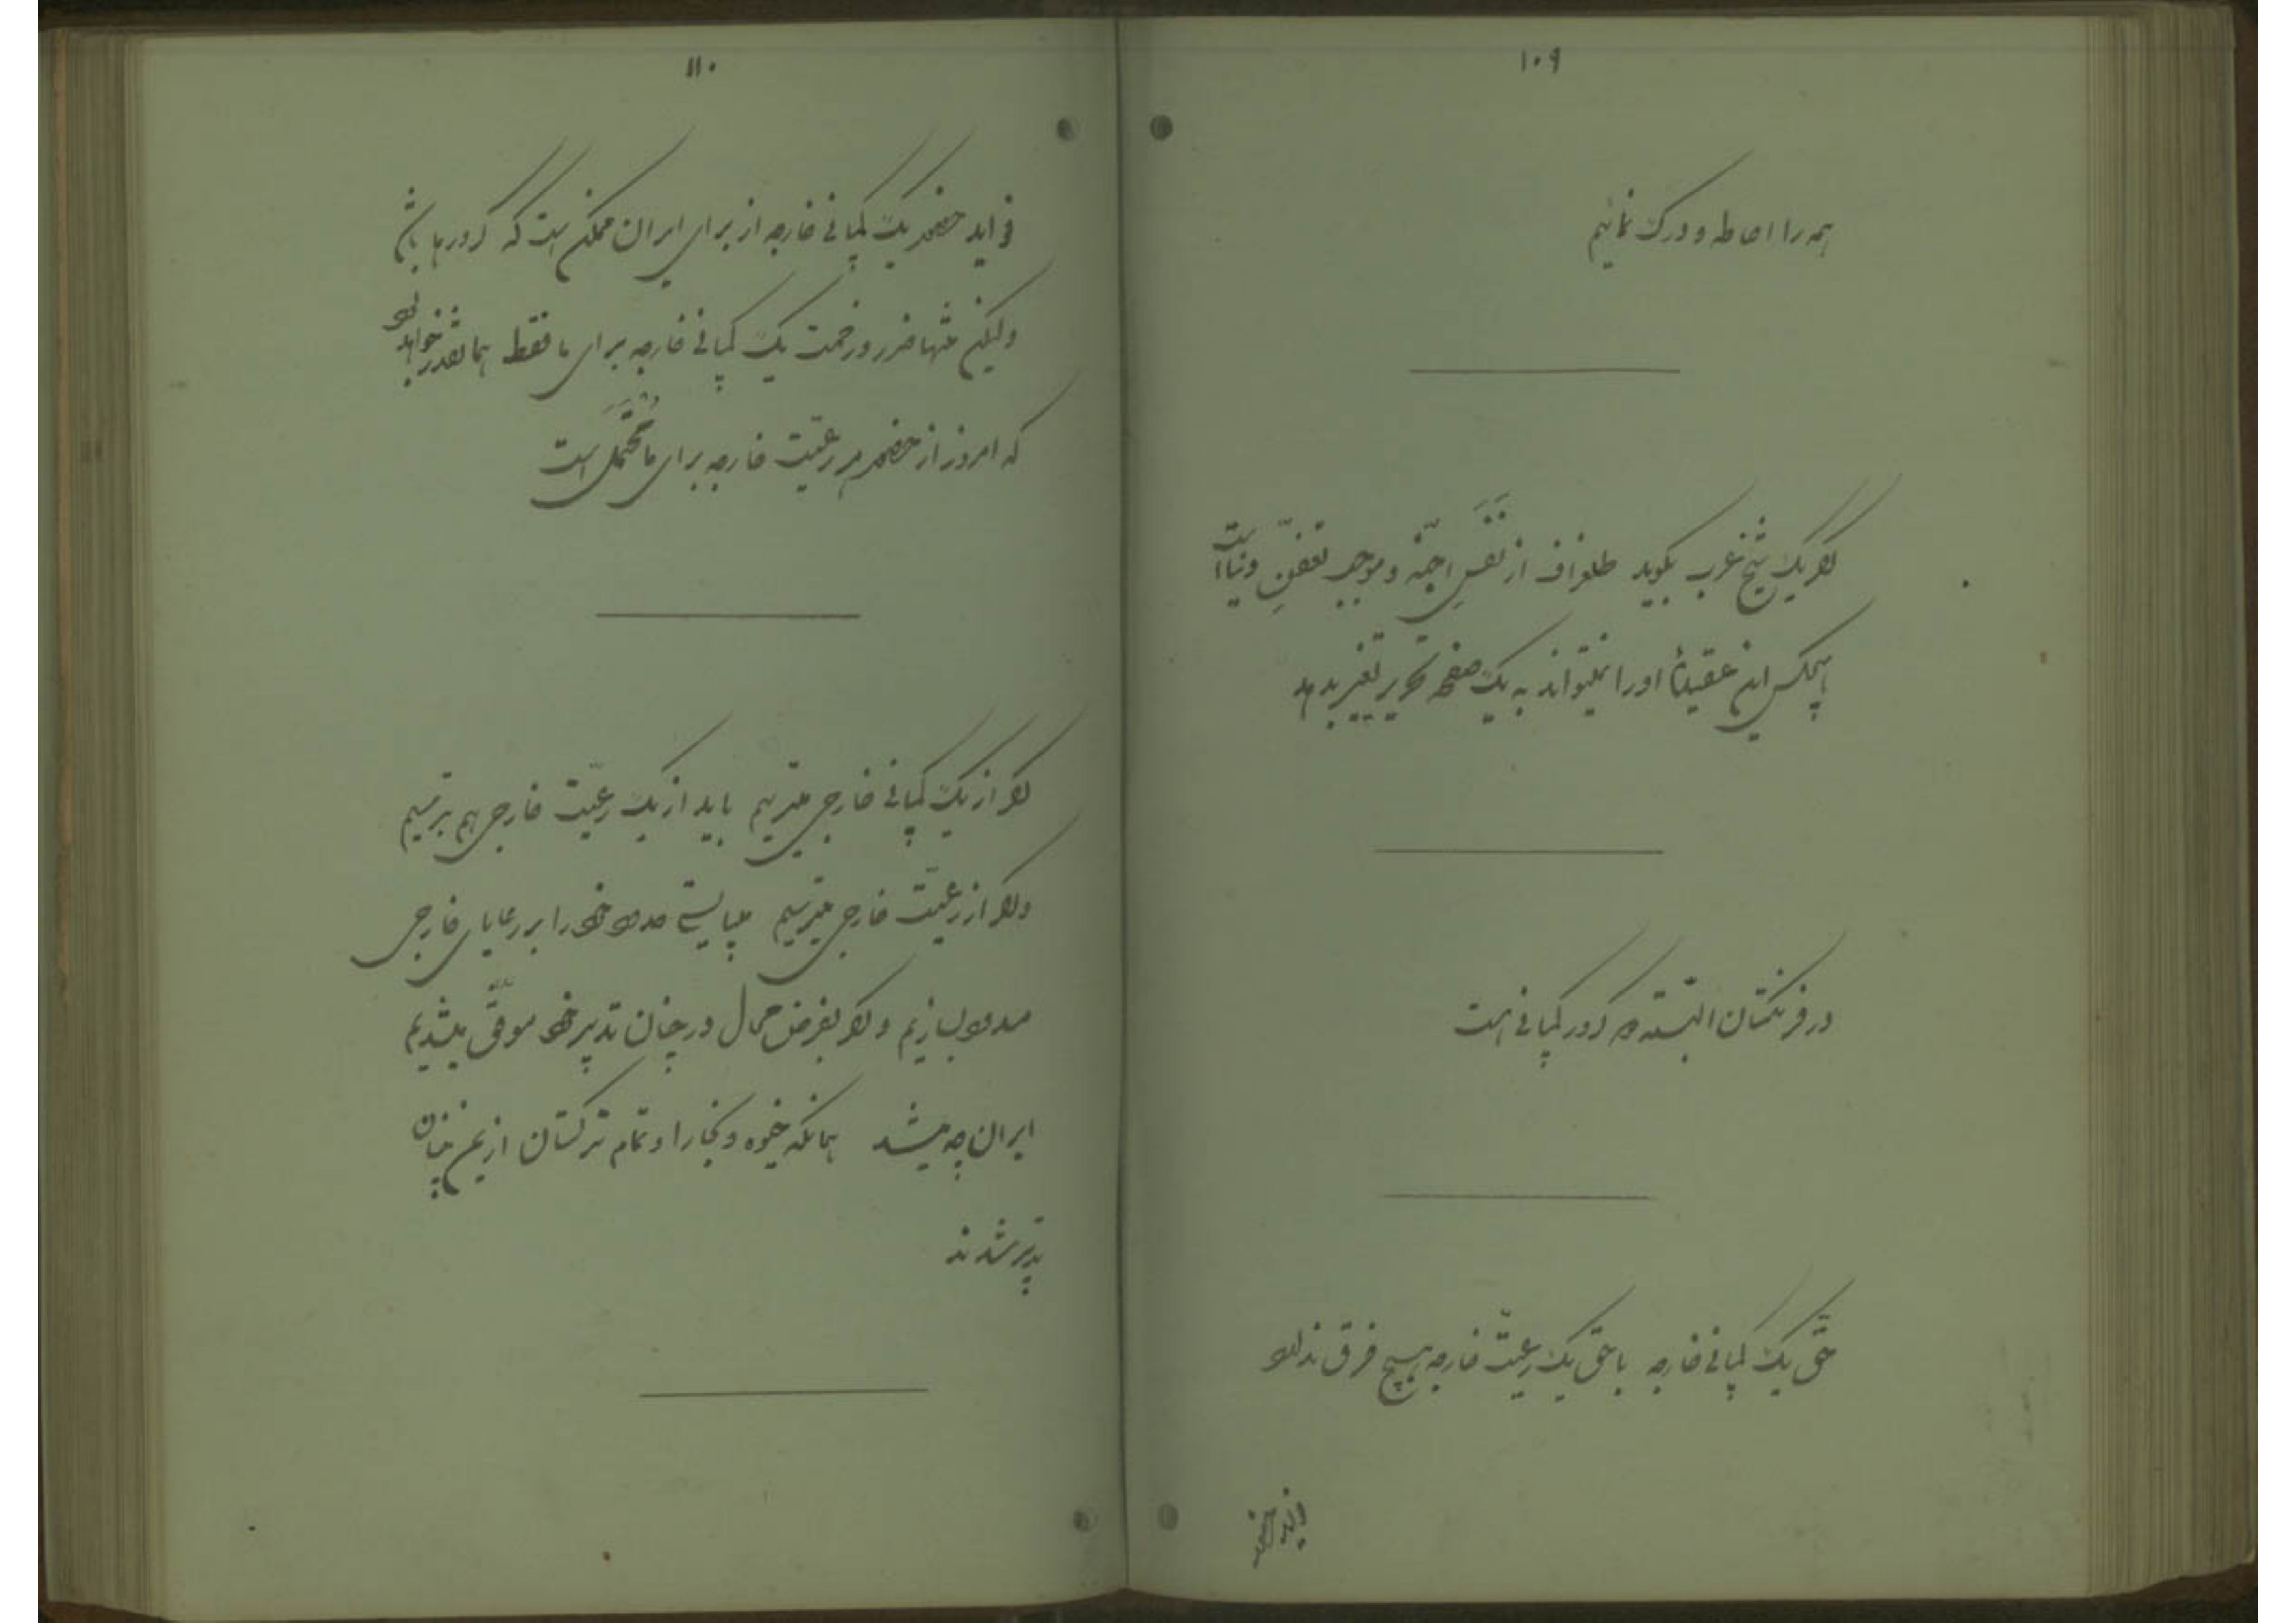 ۱۰۹
همه را احاطه و درک نمائیم
اگر یک شیخ عرب بگوید طلغراف از نَفَسِ اجنّه و موجب تعفّنِ دنیا است
هیچکس این عقیدهٔ او را نمیتواند به یک صفحه تحریر تغییر بدهد
در فرنگستان البتّه ده کرور کمپانی هست
حقّ یک کمپانی خارجه با حقّ یک رعیّت خارجه هیچ فرق ندارد
۱۱۰
فواید حضور یک کمپانی خارجه از برای ایران ممکن است که کرورها باشد
ولیکن منتها ضرر و زحمت یک کمپانی خارجه برای ما فقط همانقدر خواهد بود
که امروز از حضور هر رعیّت خارجه برای ما مُحْتَمَل است
اگر از یک کمپانی خارجی میترسیم باید از یک رعیّت خارجی هم بترسیم
و اگر از رعیّت خارجی میترسیم میبایستی حدود خود را بر رعایای خارجی
مسدود بسازیم و اگر بفرض محال در چنان تدبیر خود موفّق میشدیم
ایران چه میشد همانکه خیوه و بخارا و تمام ترکستان از یمن چنان
تدبیر شدند